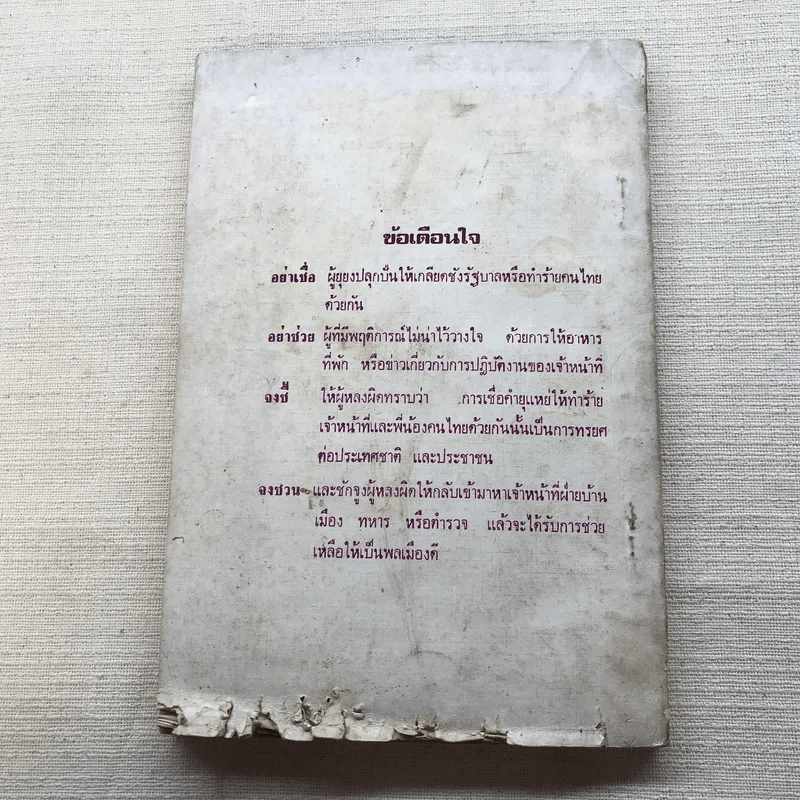 ข้อเตือนใจ
อย่าเชื่อ ผู้ยุยงปลุกปั่นให้เกลียดชังรัฐบาลหรือทำร้ายคนไทย
ด้วยกัน
อย่าช่วย ผู้ที่มีพฤติการณ์ไม่น่าไว้วางใจ ด้วยการให้อาหาร
ที่พัก หรือข่าวเกี่ยวกับการปฏิบัติงานของเจ้าหน้าที่
จงชี้ ให้ผู้หลงผิดทราบว่า การเชื่อคำยุแหย่ให้ทำร้าย
เจ้าหน้าที่และพี่น้องคนไทยด้วยกันนั้นเป็นการทรยศ
ต่อประเทศชาติ และประชาชน
จงชวน และชักจูงผู้หลงผิดให้กลับเข้ามาหาเจ้าหน้าที่ฝ่ายบ้าน
เมือง ทหาร หรือตำรวจ แล้วจะได้รับการช่วย
เหลือให้เป็นพลเมืองดี